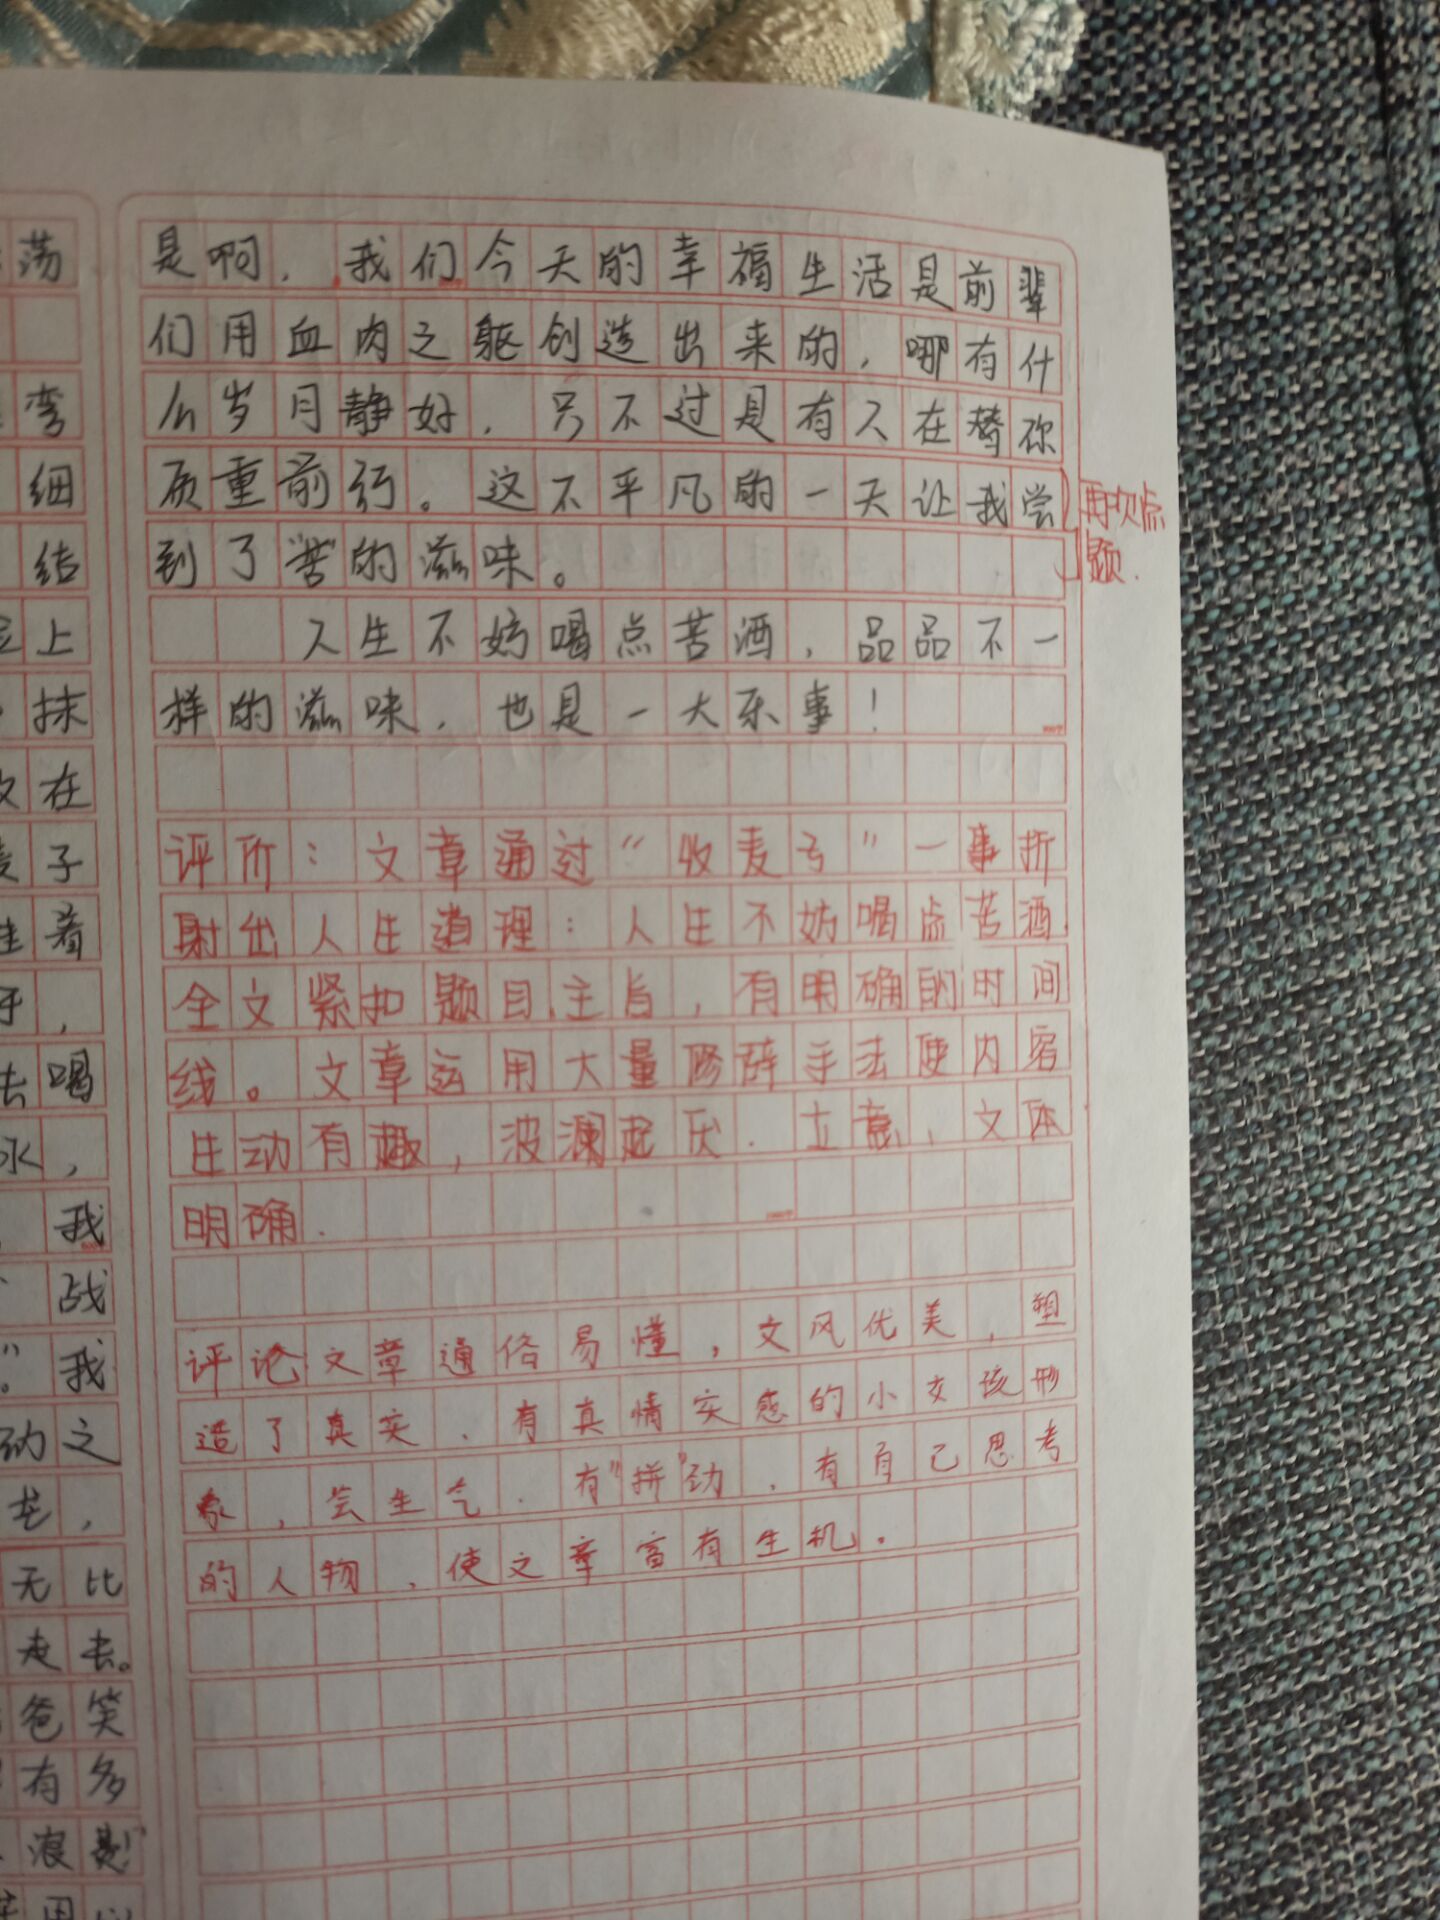 荡
弯
细
结
上
抹
在
子
着
，
去喝
，
我
战
”我
动之
龙，
无比
走去。
爸笑
有多
浪费
是啊，我们今天的幸福生活是前辈
们用血肉之躯创造出来的，哪有什
么岁月静好，只不过是有人在替你
质重前行。这不平凡的一天让我尝
到了“苦”的滋味。
再次点
题.
人生不妨喝点苦酒，品品不一
样的滋味，也是一大乐事！
评价：文章通过“收麦子”一事折
射出人生道理：人生不妨喝点苦酒.
全文紧扣题目、主旨，有明确的时间
线。文章运用大量修辞手法使内容
生动有趣，波澜起伏.立意、文体
明确.
评论文章通俗易懂，文风优美，塑
造了真实、有真情实感的小女孩形
象，会生气.有“拼”劲，有自己思考
的人物，使文章富有生机.